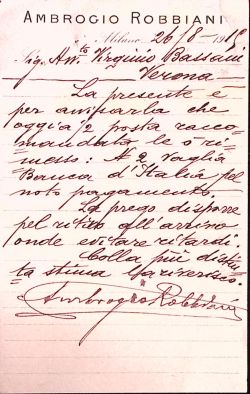 AMBROGIO ROBBIANI
Milano, 26/8 - 19
Sig. Virginio Bassani
Verona
La presente è
per avvisarla che
oggi a/2 posta racco
mandata le ò ri-
messo: N 2 Vaglia
Banca d'Italia pel
noto pagamento.
La prego disporre
pel ritiro all'arrivo
onde evitare ritardi.
Colla più distin
ta stima La riverisco.
Ambrogio Robbiani